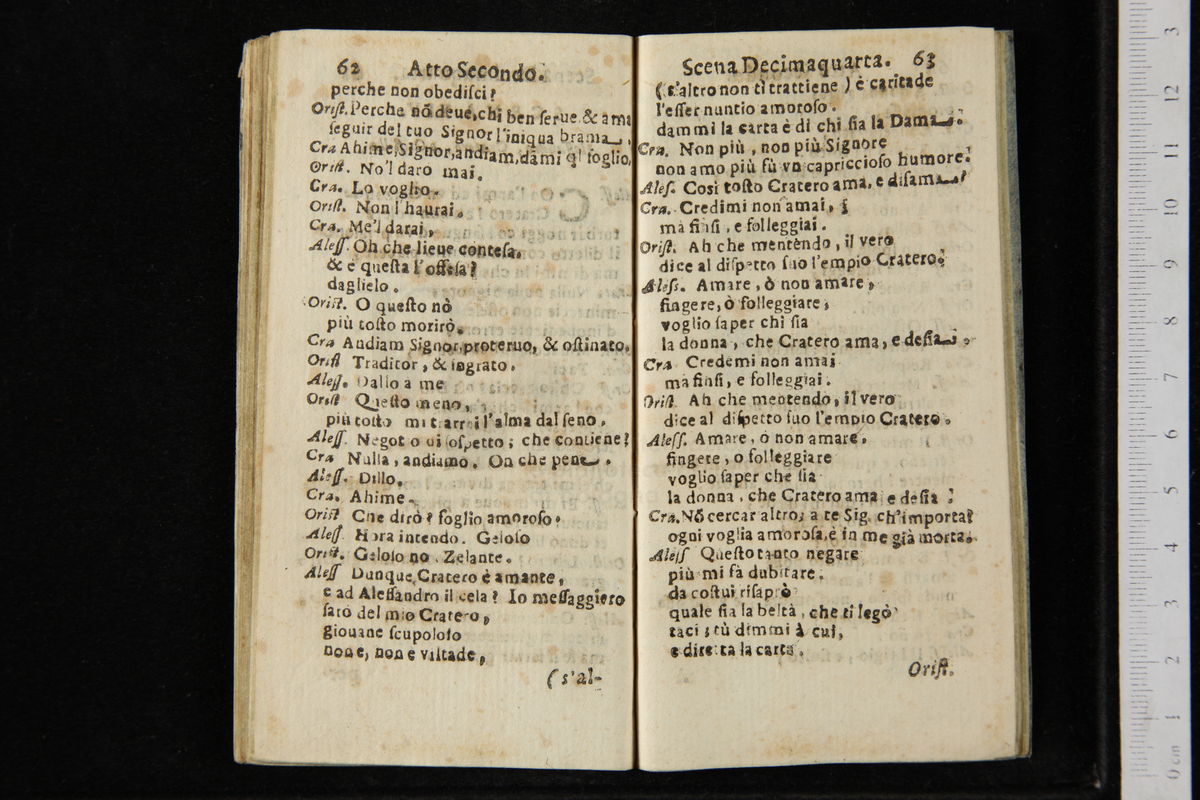 62 Atto Secondo.
perche non obediſci?
Oriſt. Perche nõ deue, chi ben ſerue & ama
ſeguir del tuo Signor l'iniqua brama.
Cra Ahime, Signor, andiam, dami q̃l foglio,
Oriſt. No'l daro mai.
Cra. Lo voglio.
Oriſt. Non l'haurai.
Cra. Me'l darai,
Aleſſ. Oh che lieue conteſa.
& è queſta l'offeſa?
daglielo.
Oriſt. O queſto nò
più toſto morirò.
Cra Andiam Signor, proteruo, & oſtinato.
Oriſt Traditor, & ingrato.
Aleſſ. Dallo a me
Oriſt Queſto meno,
più toſto mi trarrei l'alma dal ſeno.
Aleſſ. Negot o di ſoſpetto; che contiene?
Cra Nulla, andiamo. On che pene.
Aleſſ. Dillo.
Cra. Ahime.
Oriſt Che dirò? foglio amoroſo.
Aleſſ. Hora intendo. Geloſo
Oriſt. Geloſo no. Zelante.
Aleſſ Dunque, Cratero è amante,
e ad Aleſſandro il cela? Io meſſaggiero
ſarò del mio Cratero,
giouane ſcupoloſo
non e, non e viltade,
(s'al-
Scena Decimaquarta. 63
(s'altro non tì trattiene) è caritade
l'eſſer nuntio amoroſo.
dammi la carta è di chi ſia la Dama.
Cra. Non più, non più Signore
non amo più fù vn capriccioſo humore.
Aleſ. Così toſto Cratero ama, e diſama?
Cra. Credimi non amai,
mà finſi, e folleggiai.
Oriſt. Ah che mentèndo, il vero
dice al diſpetto ſuo l'empio Cratero.
Aleſs. Amare, ò non amare,
fingere, ò folleggiare,
voglio ſaper chi ſia
la donna, che Cratero ama, e deſia.
Cra Credemi non amai
mà finſi, e folleggiai.
Oriſt. Ah che mentendo, il vero
dice al diſpetto ſuo l'empio Cratero.
Aleſſ. Amare, ò non amare.
fingere, o folleggiare
voglio ſaper che ſia
la donna, che Cratero ama e deſia:
Cra. Nõ cercar altro; a te Sig. ch'importa?
ogni voglia amoroſa, è in me già morta.
Aleſſ Queſto tanto negare
più mi fà dubitare.
da coſtui riſaprò
quale ſia la beltà, che ti legò
taci; tù dimmi à cui,
e diretta la carta.
Oriſt.